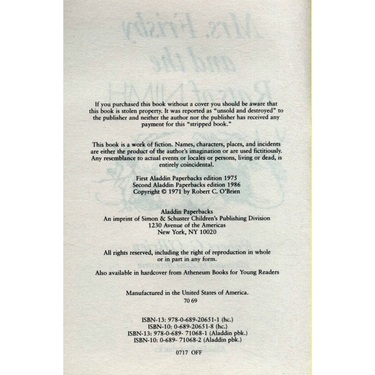 Mrs. Frisby
and the
Rats of NIMH
If you purchased this book without a cover you should be aware that
this book is stolen property. It was reported as "unsold and destroyed" to
the publisher and neither the author nor the publisher has received any
payment for this "stripped book."
This book is a work of fiction. Names, characters, places, and incidents
are either the product of the author's imagination or are used fictitiously.
Any resemblance to actual events or locales or persons, living or dead, is
entirely coincidental.
First Aladdin Paperbacks edition 1975
Second Aladdin Paperbacks edition 1986
Copyright © 1971 by Robert C. O'Brien
Aladdin Paperbacks
An imprint of Simon & Schuster Children's Publishing Division
1230 Avenue of the Americas
New York, NY 10020
All rights reserved, including the right of reproduction in whole
or in part in any form.
Also available in hardcover from Atheneum Books for Young Readers
Manufactured in the United States of America.
70 69
ISBN-13: 978-0-689-20651-1 (hc.)
ISBN-10: 0-689-20651-8 (hc.)
ISBN-13: 978-0-689- 71068-1 (Aladdin pbk.)
ISBN-10: 0-689- 71068-2 (Aladdin pbk.)
0717 OFF